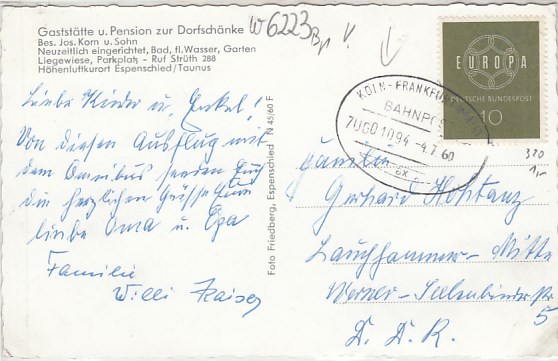 Gaststätte u. Pension zur Dorfschänke
Bes. Jos. Korn u. Sohn
Neuzeitlich eingerichtet, Bad, fl. Wasser, Garten
Liegewiese, Parkplatz - Ruf Strüth 288
Höhenluftkurort Espenschied/Taunus
W 6223
Liebe Kinder u. Enkel!
Von diesen Ausflug mit
dem Omnibus senden Euch
die herzlichen Grüsse
liebe Oma u. Opa
Familie
Willi Kaiser
Foto Friedberg, Espenschied N 45/60 F
EUROPA
DEUTSCHE BUNDESPOST
10
KÖLN-FRANKFURT
BAHNPOST
ZUG 01094 -4.7.60
320
Familie
Gerhard
Lauchhammer-Mitte
Werner-Seelenbinder-Str
5
D. D. R.